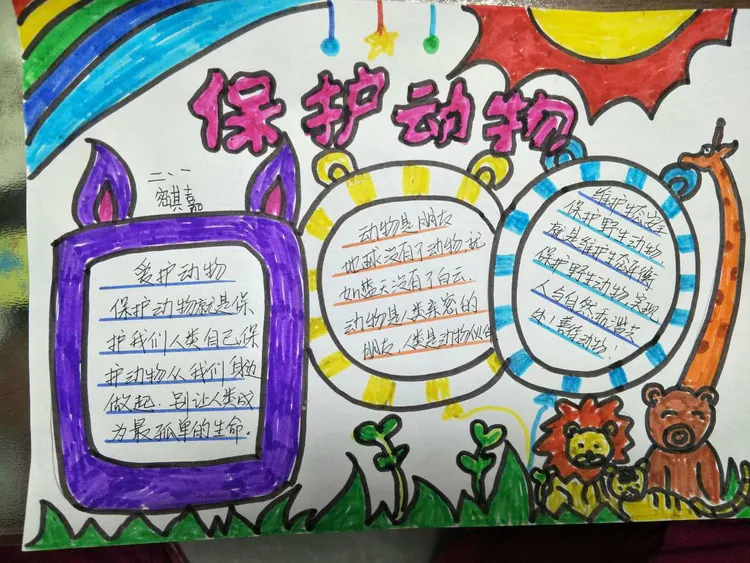 保护动物
二、一
爱护动物
保护动物就是保
护我们人类自己保
护动物从我们身边
做起,别让人类成
为最孤单的生命.
动物是朋友
地球没有了动物,就
如蓝天没有了白云
动物是人类亲密的
朋友,人类是动物
保护野生动物
就是维护生态平衡
保护野生动物,实现
人与自然和谐
善待动物!